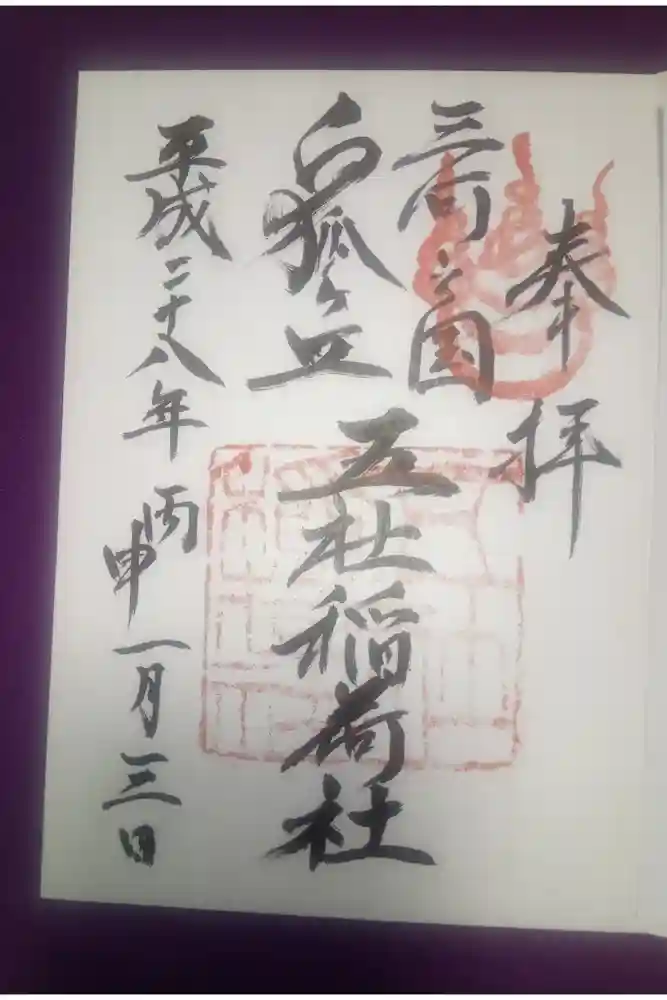 奉拝
三河之国
白狐ヶ丘
五社稲荷社
平成二十八年丙申一月三日